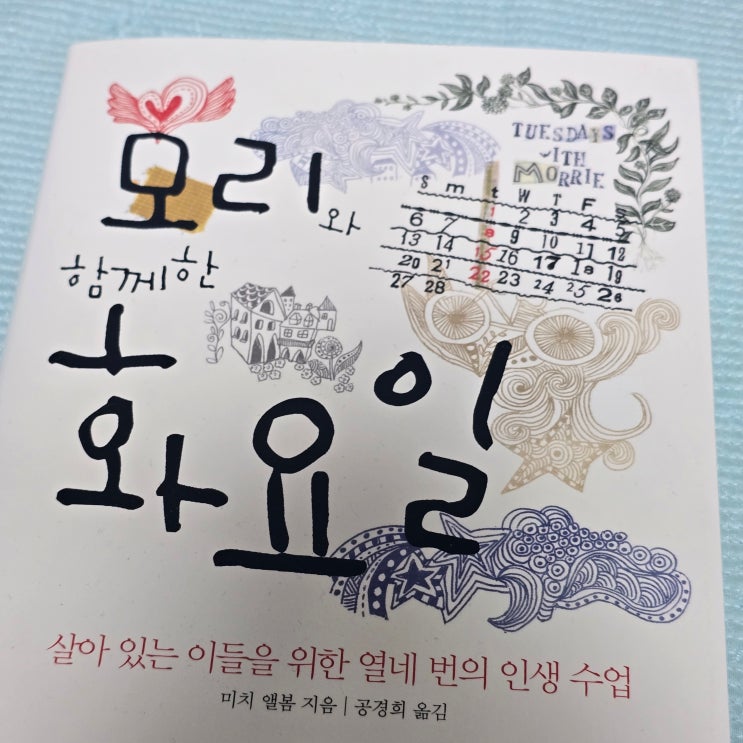 TUESDAYS
WITH
MORRIE
모리와
함께한
화요일
S m t W T F S
1 2 3 4 5
6 7 8 9 10 11 12
13 14 15 16 17 18 19
20 21 22 23 24 25 26
27 28
살아 있는 이들을 위한 열네 번의 인생 수업
미치 앨봄 지음 | 공경희 옮김